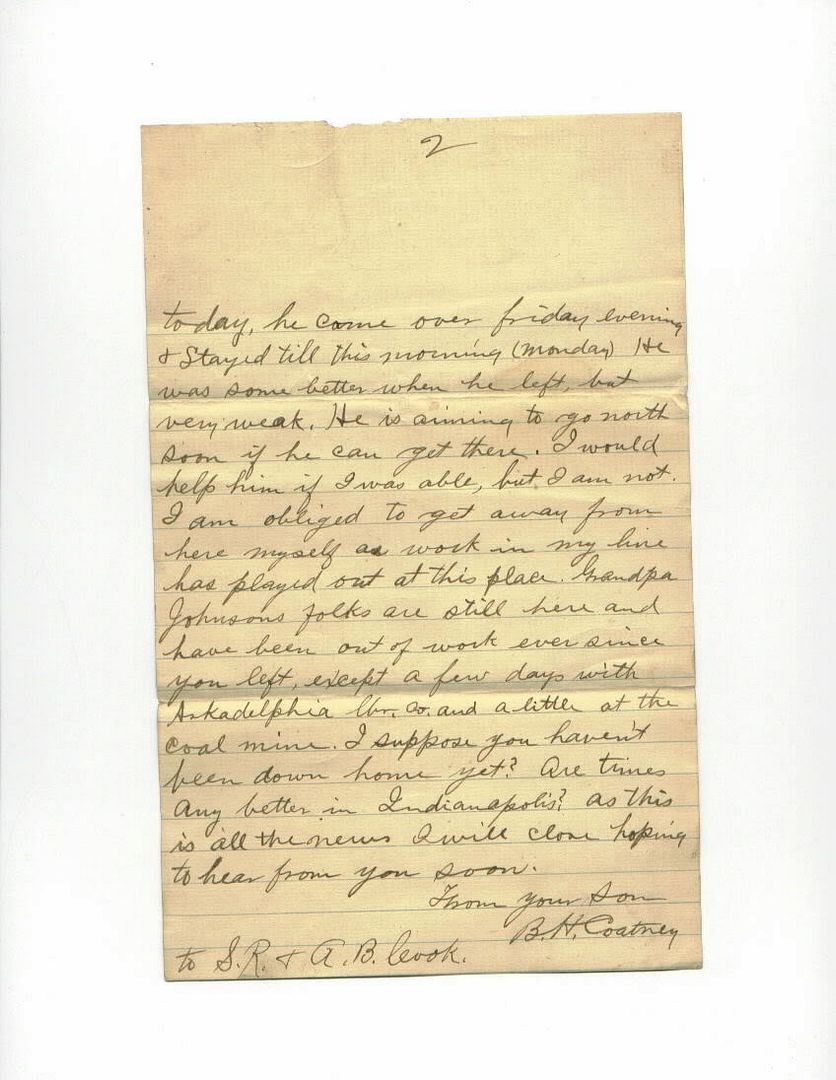 2
today, he come over friday evening
& Stayed till this morning (monday) He
was some better when he left, but
very weak. He is aiming to go north
soon if he can get there. I would
help him if I was able, but I am not.
I am obliged to get away from
here myself as work in my line
has played out at this place. Grandpa
Johnsons folks are still here and
have been out of work ever since
you left, except a few days with
Arkadelphia lbr. co. and a little at the
coal mine. I suppose you haven't
been down home yet? Are times
any better in Indianapolis? as this
is all the news I will close hoping
to hear from you soon.
From your son
B.H. Coatney
to S.R. & A.B. Cook.